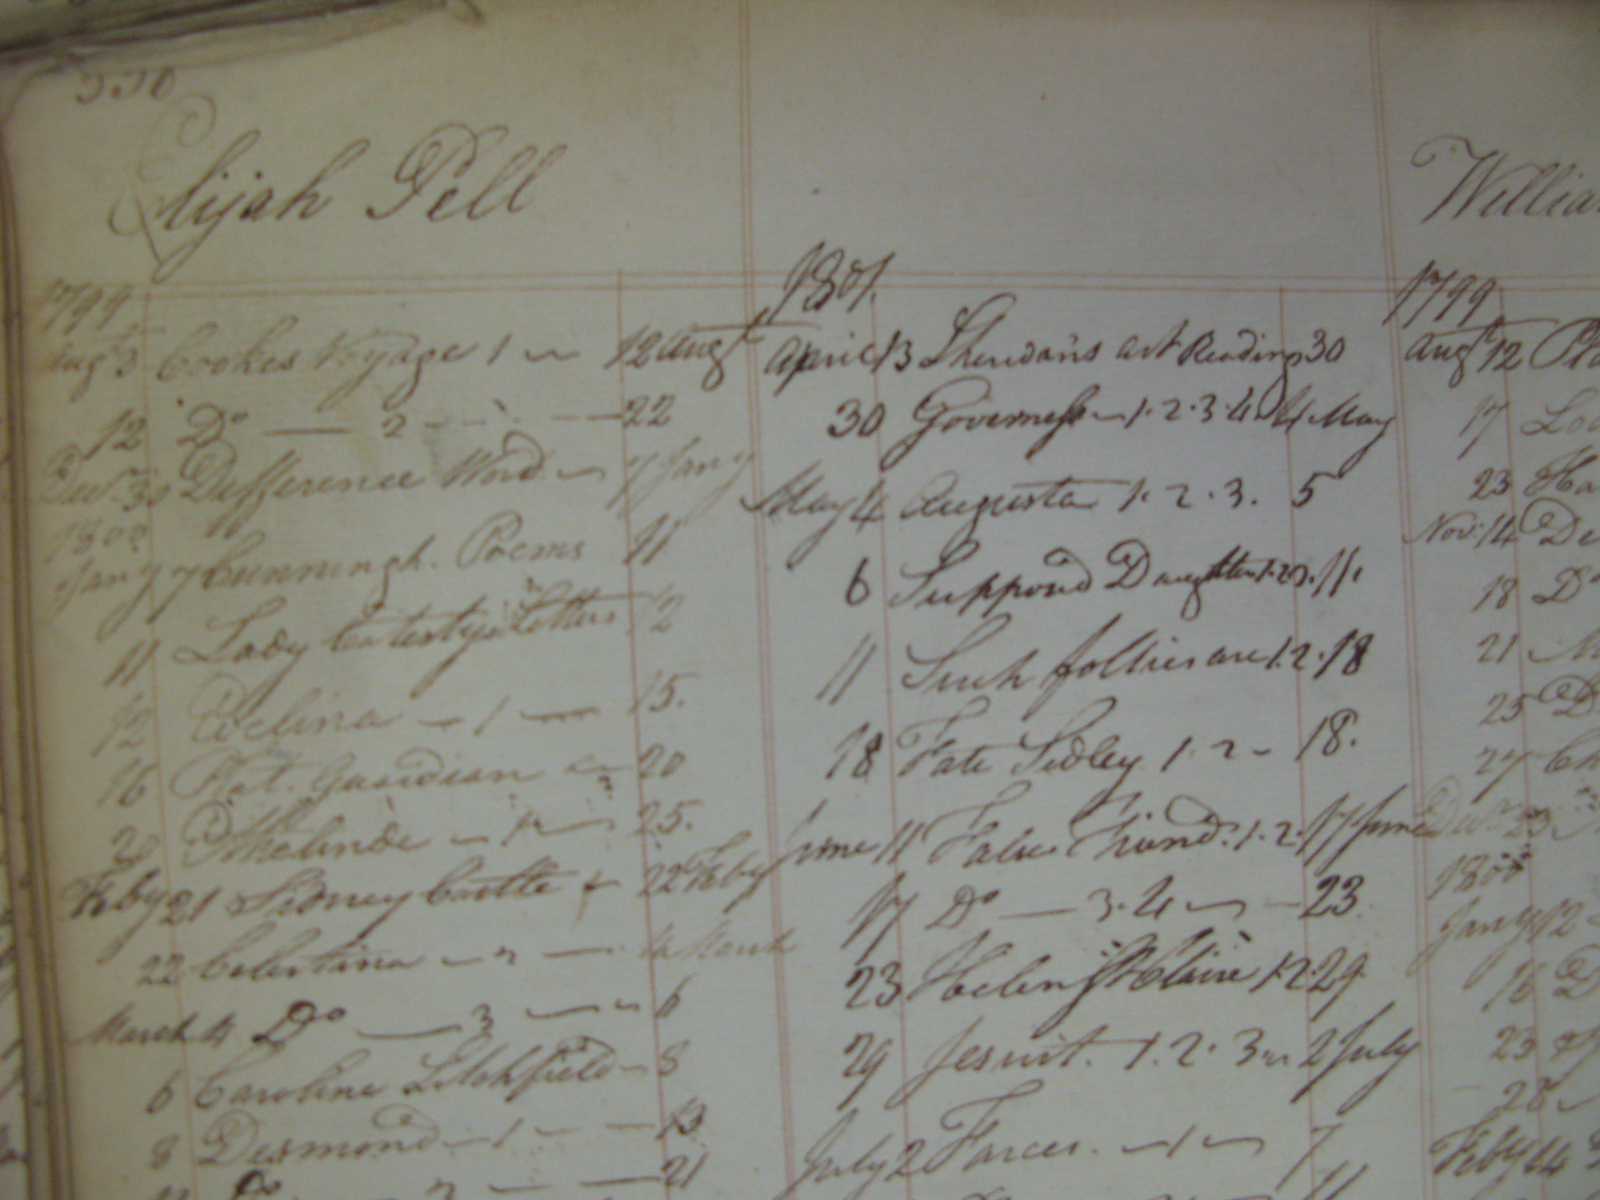 330
Elijah Pell
1799
Augt 3 Cookes Voyage 1 12 Augt
12 Do 2 22
Decr. 30 Defference Word 7 Jany
1800
Jany 7 Cunningh. Poems 11
11 Lady Letters 12
12 Evelina 1 15.
16 Nat. Guardian 20
20 Ethelinde 1 25.
Feby 21 Sidney Castle 22 Feby
22 Celestina 4 March
March 4 Do 3 6
6 Caroline Litchfield 8
8 Desmond 1 13
21
1801.
April 13 Sheridans art Reading 30
30 Governess 1.2.3.4 4 May
May 4 Augusta 1.2.3. 5
6 Supposd Daughter 1.2.3. 11.
11 Such follies are 1.2. 18
18 Fate Sedley 1.2 18.
June 11 False Friend. 1.2. 17 June
17 Do 3.4 23.
23 Helen St Claire 1.2. 29.
29 Jesuit. 1.2.3 2 July
July 2 Farces. 1 7
11
William
1799
Augt 12
17
23
Nov. 14
18 Do
21
25
27
Decr. 23
1800
Jany 12
16
23
28
Feby 14